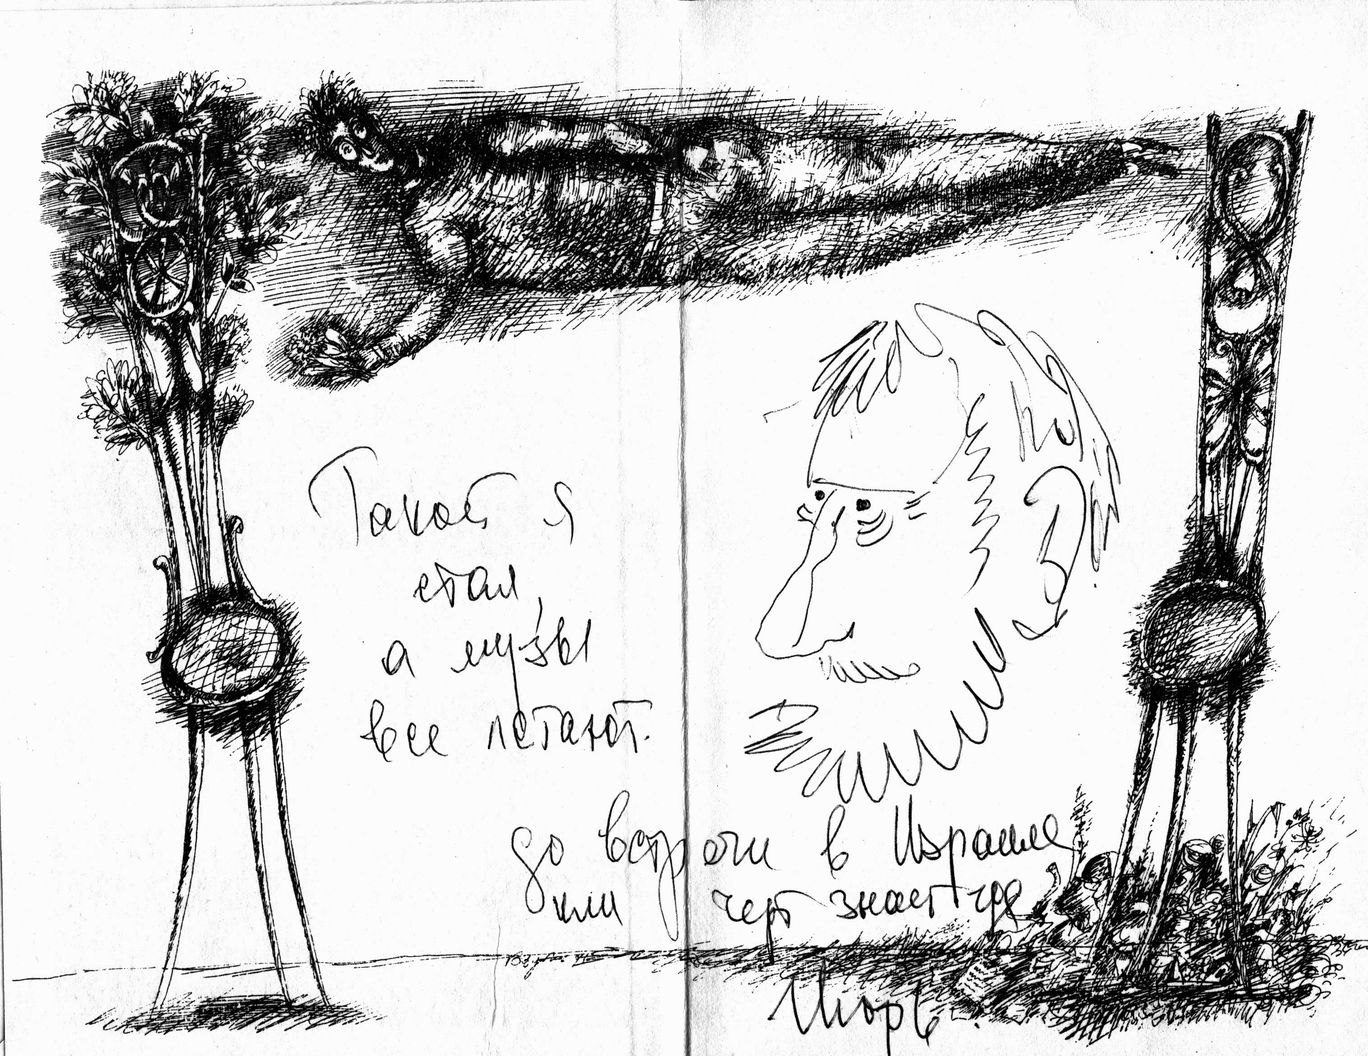 Такой я
стал,
а музы
все летают.
до встречи в Израиле
или черт знает где
Игорь